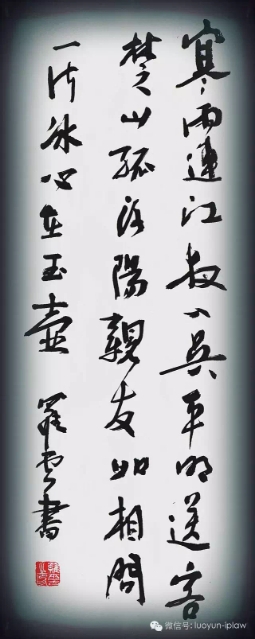 寒雨連江夜入吳平明送客
楚山孤洛陽親友如相問
一片冰心在玉壺 羅雲書
微信号: luoyun-iplaw